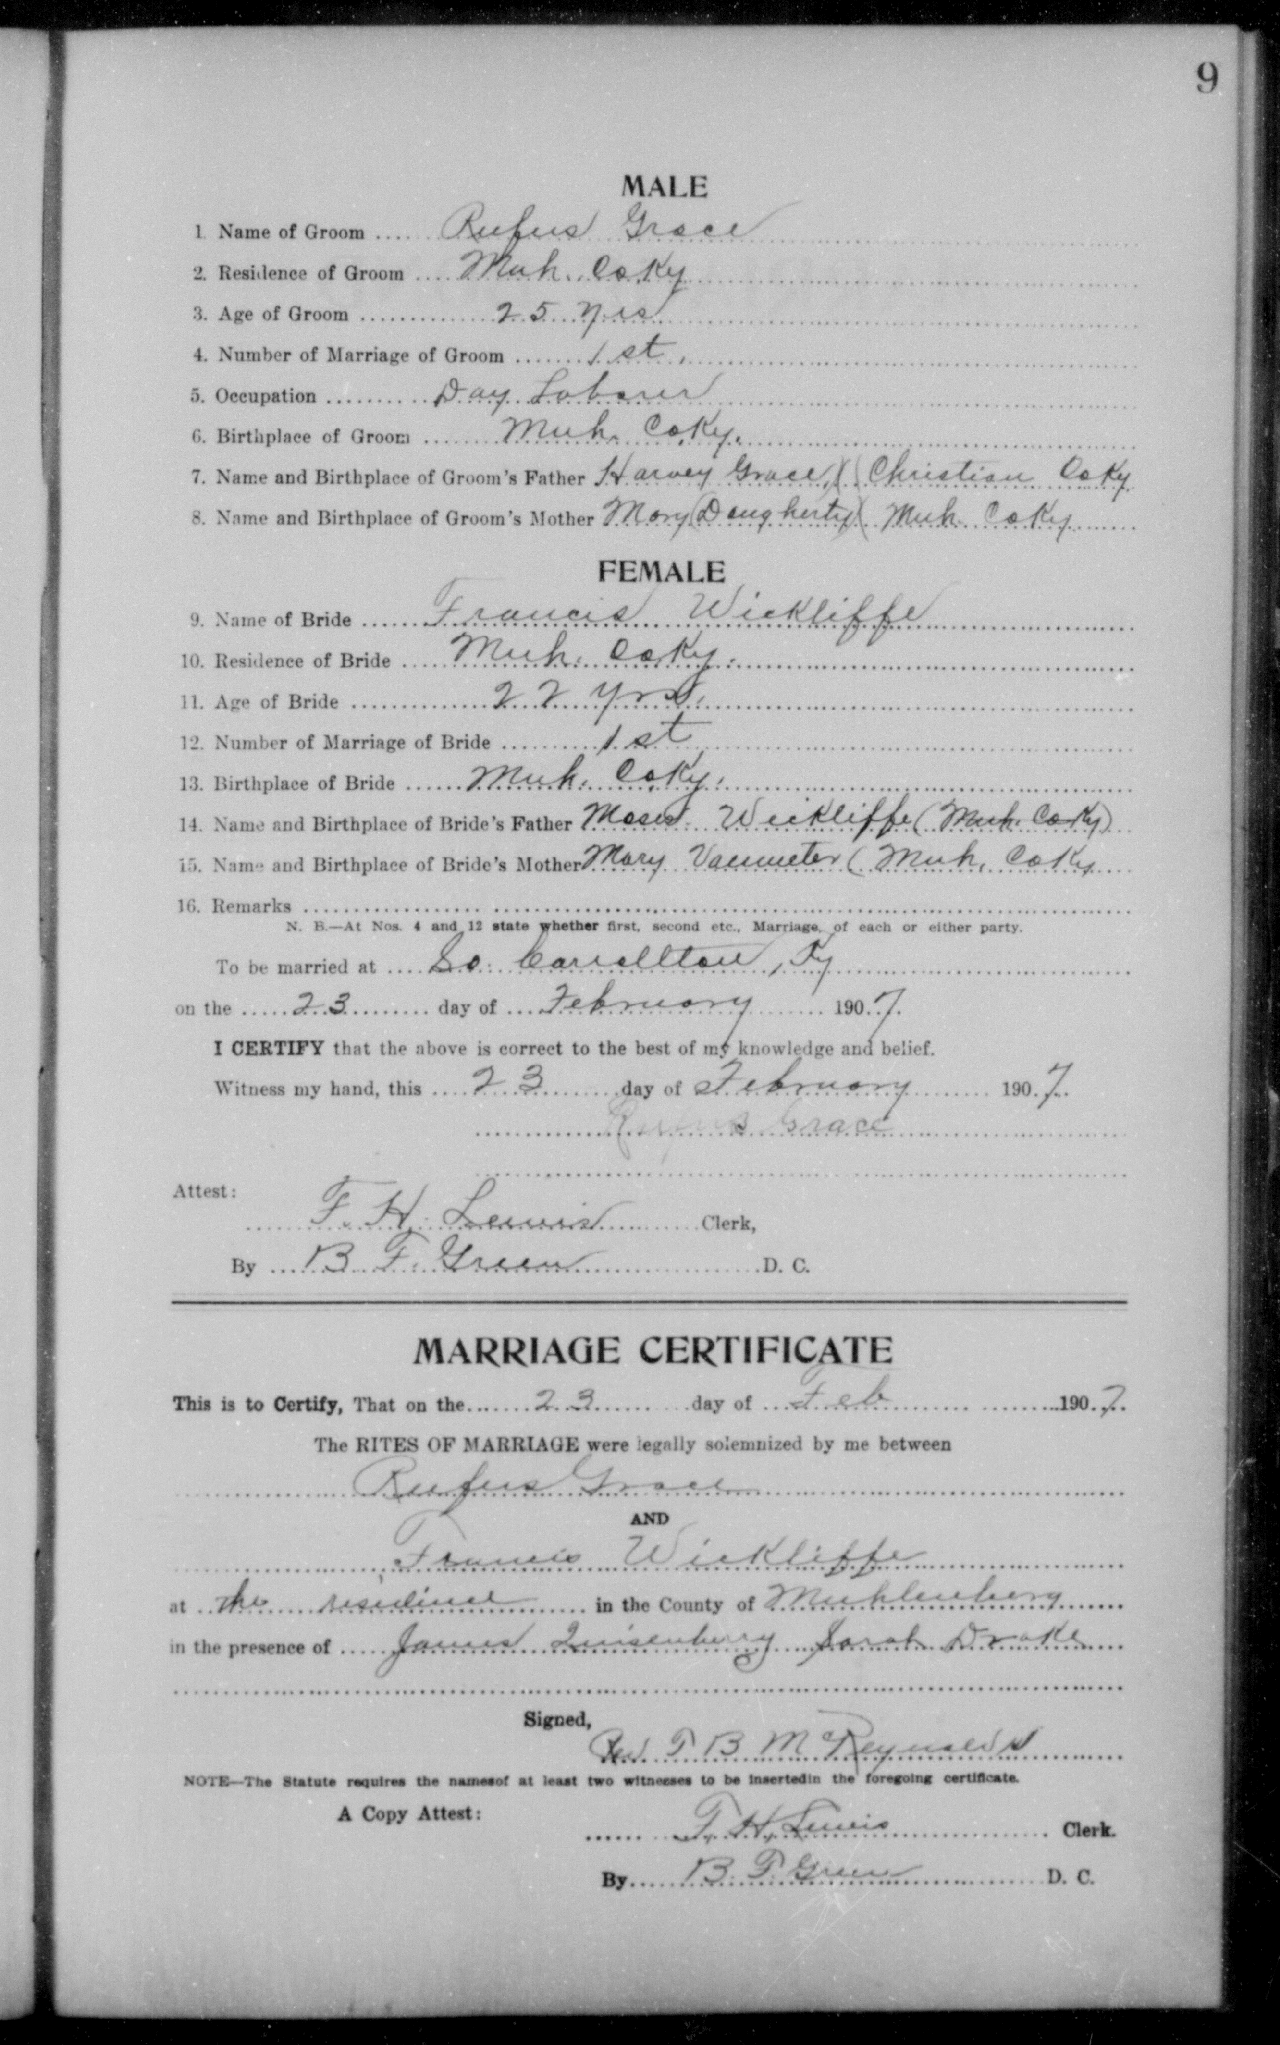 9
MALE
1. Name of Groom ..... Rufus Grace
2. Residence of Groom .... Muh. Co. Ky
3. Age of Groom ............. 25 yrs
4. Number of Marriage of Groom ....... 1st.
5. Occupation .......... Day Laborer
6. Birthplace of Groom ....... Muh. Co. Ky.
7. Name and Birthplace of Groom's Father Harvey Grace, (Christian Co Ky
8. Name and Birthplace of Groom's Mother Mary (Daugherty) (Muh. Co Ky
FEMALE
9. Name of Bride ...... Francis Wickliffe
10. Residence of Bride .... Muh. Co. Ky.
11. Age of Bride ............. 22 yrs.
12. Number of Marriage of Bride ......... 1st
13. Birthplace of Bride ...... Muh. Co. Ky.
14. Name and Birthplace of Bride's Father Moses Wickliffe (Muh. Co. Ky)
15. Name and Birthplace of Bride's Mother Mary Vanmeter (Muh. Co Ky
16. Remarks
N. B.—At Nos. 4 and 12 state whether first, second etc., Marriage, of each or either party.
To be married at .... So. Carrollton, Ky
on the ..... 23 ........ day of .... February ........ 190.7.
I CERTIFY that the above is correct to the best of my knowledge and belief.
Witness my hand, this .... 23 ........ day of February ........ 190.7.
Rufus Grace
Attest:
F. H. Lewis ........ Clerk,
By ... B. F. Green ........ D. C.
MARRIAGE CERTIFICATE
This is to Certify, That on the ....... 23 ........ day of ... Feb ........ 190.7.
The RITES OF MARRIAGE were legally solemnized by me between
Rufus Grace
AND
Francis Wickliffe
at the residence ...... in the County of Muhlenberg
in the presence of ..... James Quisenberry Sarah Drake
Signed,
Rev T B McReynolds
NOTE—The Statute requires the namesof at least two witnesses to be insertedin the foregoing certificate.
A Copy Attest:
F. H. Lewis ........ Clerk.
By ..... B. F. Green ........ D. C.